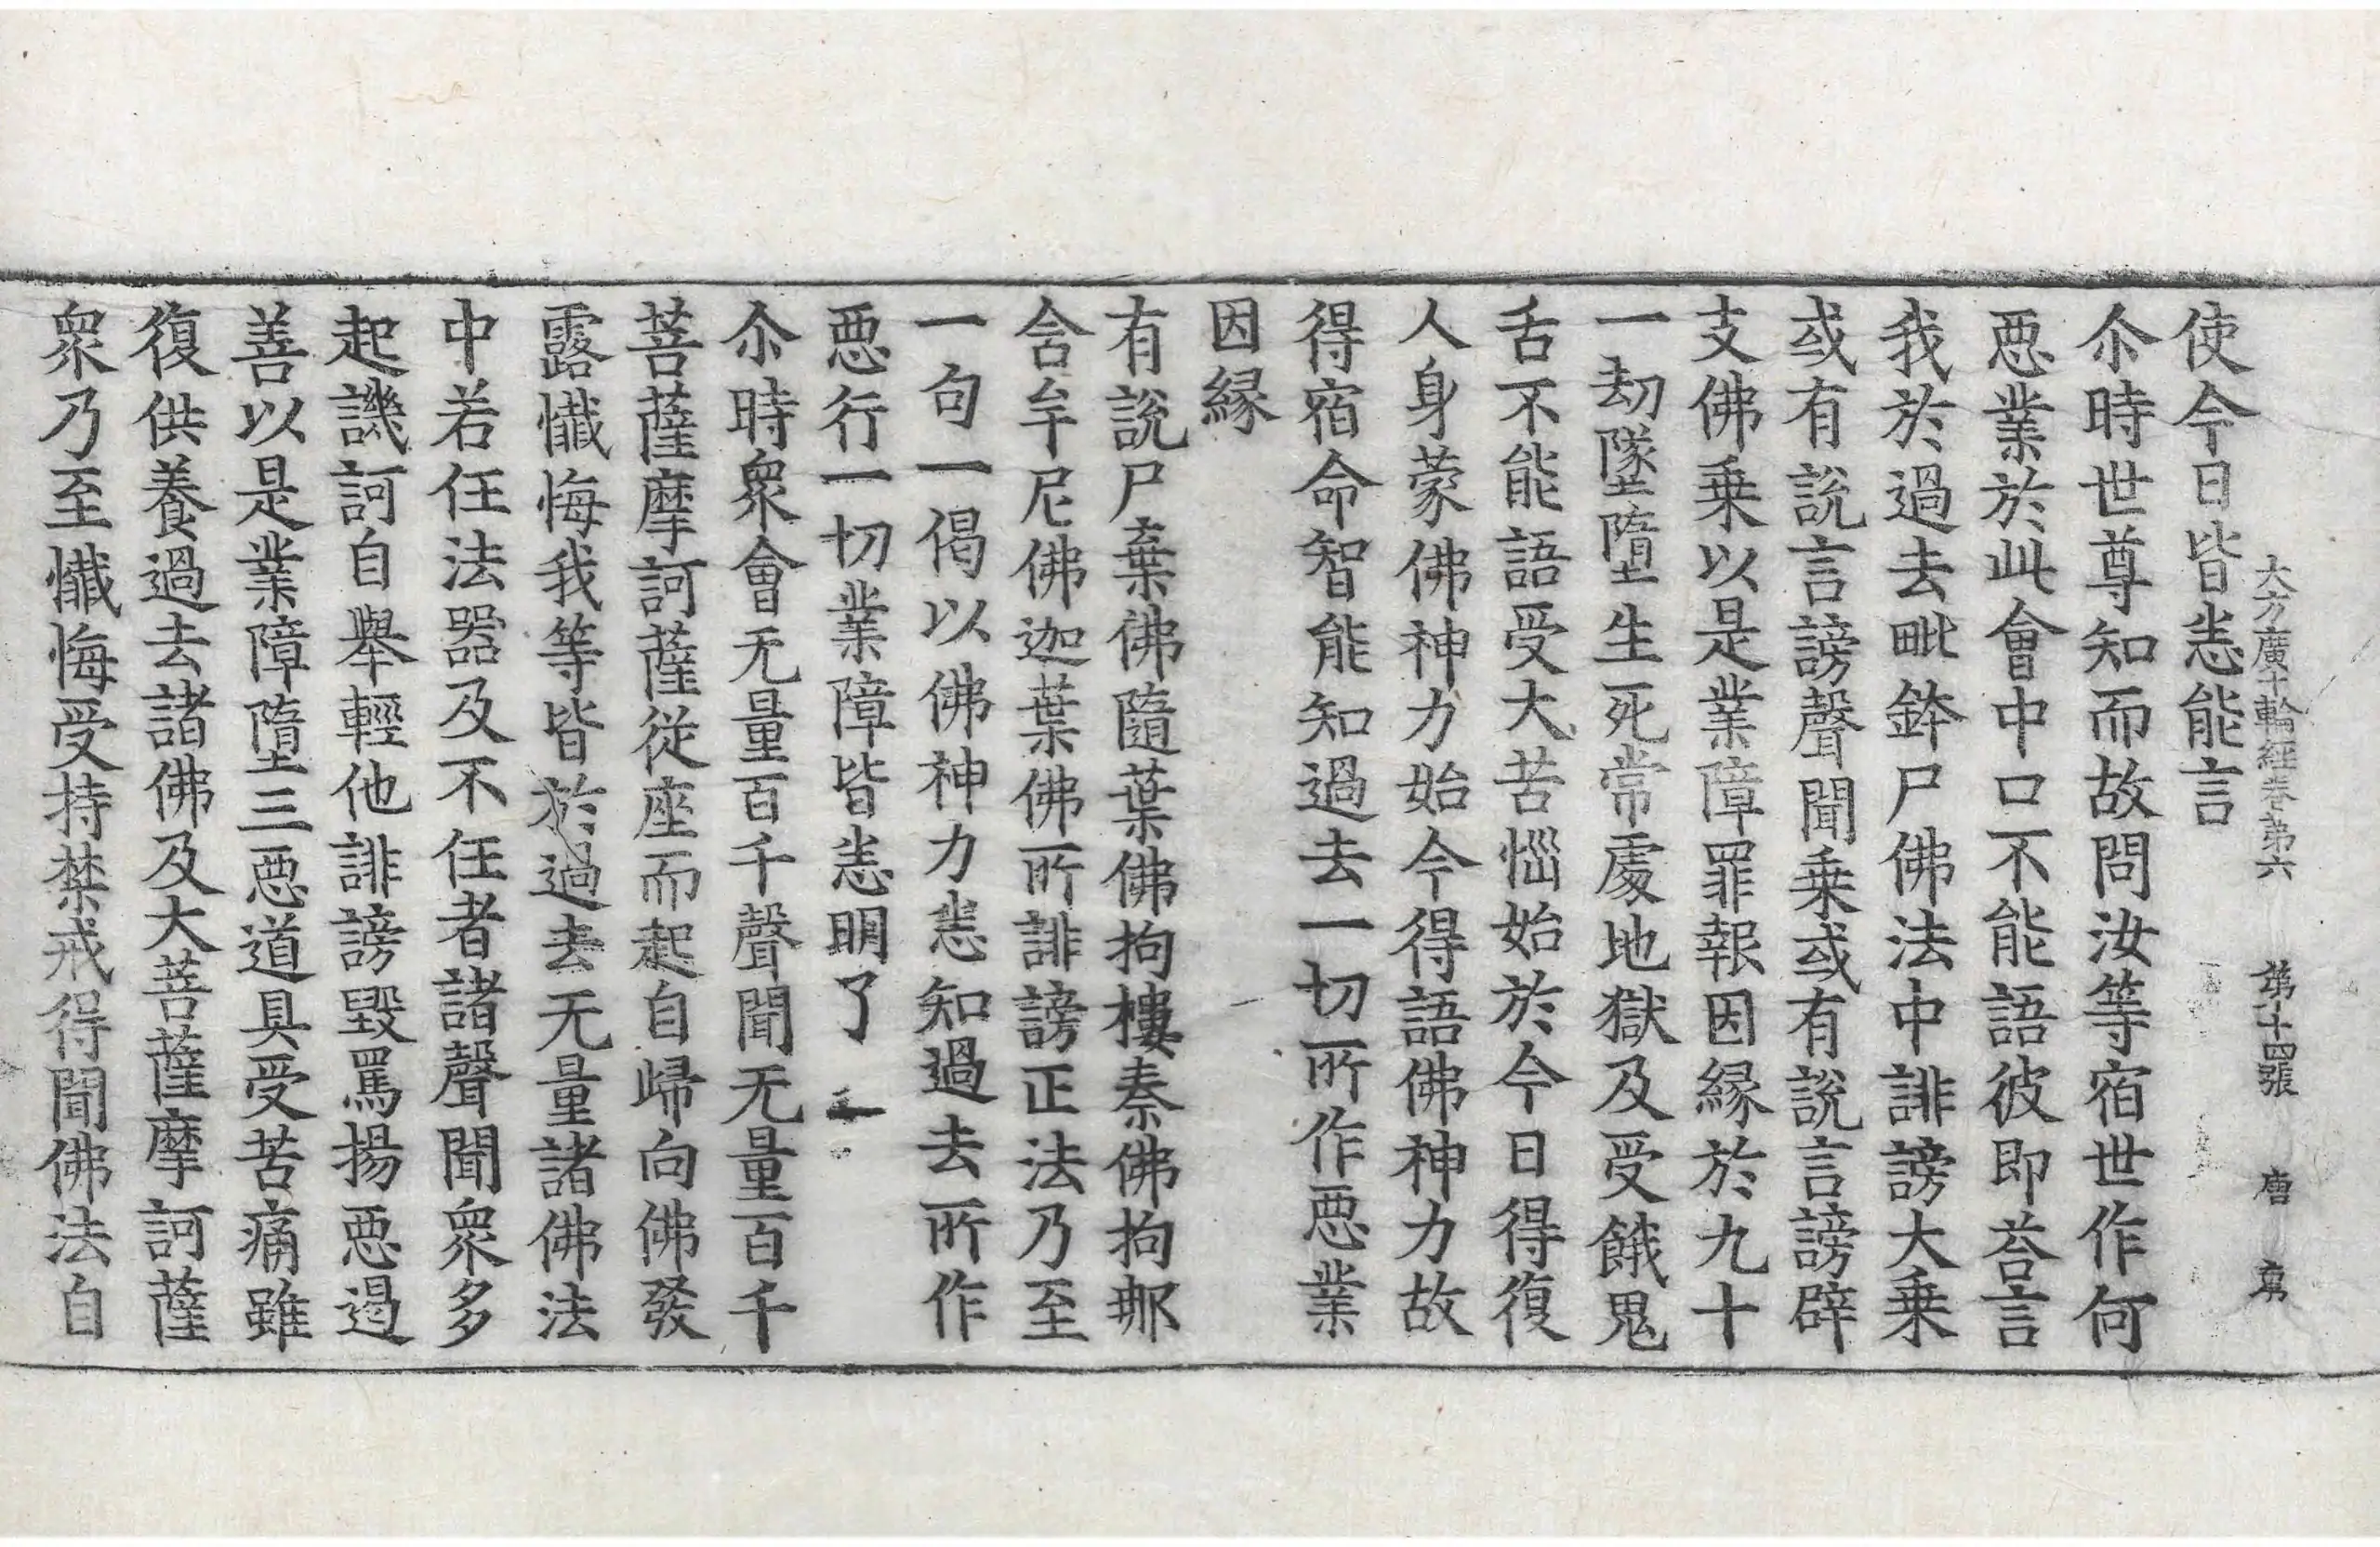 大方廣十輪經卷第六　第十四張　唐　寫
使今日皆恙能言
尒時世尊知而故問汝等宿世作何
惡業於此會中口不能語彼即荅言
我於過去毗鉢尸佛法中誹謗大乗
或有說言謗聲聞乗或有說言謗辟
支佛乗以是業障罪報因縁於九十
一劫墜墮生死常處地獄及受餓鬼
舌不能語受大苦惱始於今日得復
人身蒙佛神力始今得語佛神力故
得宿命智能知過去一切所作惡業
因縁
有說尸棄佛隨葉佛拘樓秦佛拘那
含牟尼佛迦葉佛所誹謗正法乃至
一句一偈以佛神力恙知過去所作
惡行一切業障皆恙明了
尒時衆會无量百千聲聞无量百千
菩薩摩訶薩從座而起自歸向佛發
露懺悔我等皆於過去无量諸佛法
中若任法器及不任者諸聲聞衆多
起譏訶自舉輕他誹謗毀罵揚惡遏
善以是業障墮三惡道具受苦痛雖
復供養過去諸佛及大菩薩摩訶薩
衆乃至懺悔受持禁戒得聞佛法自